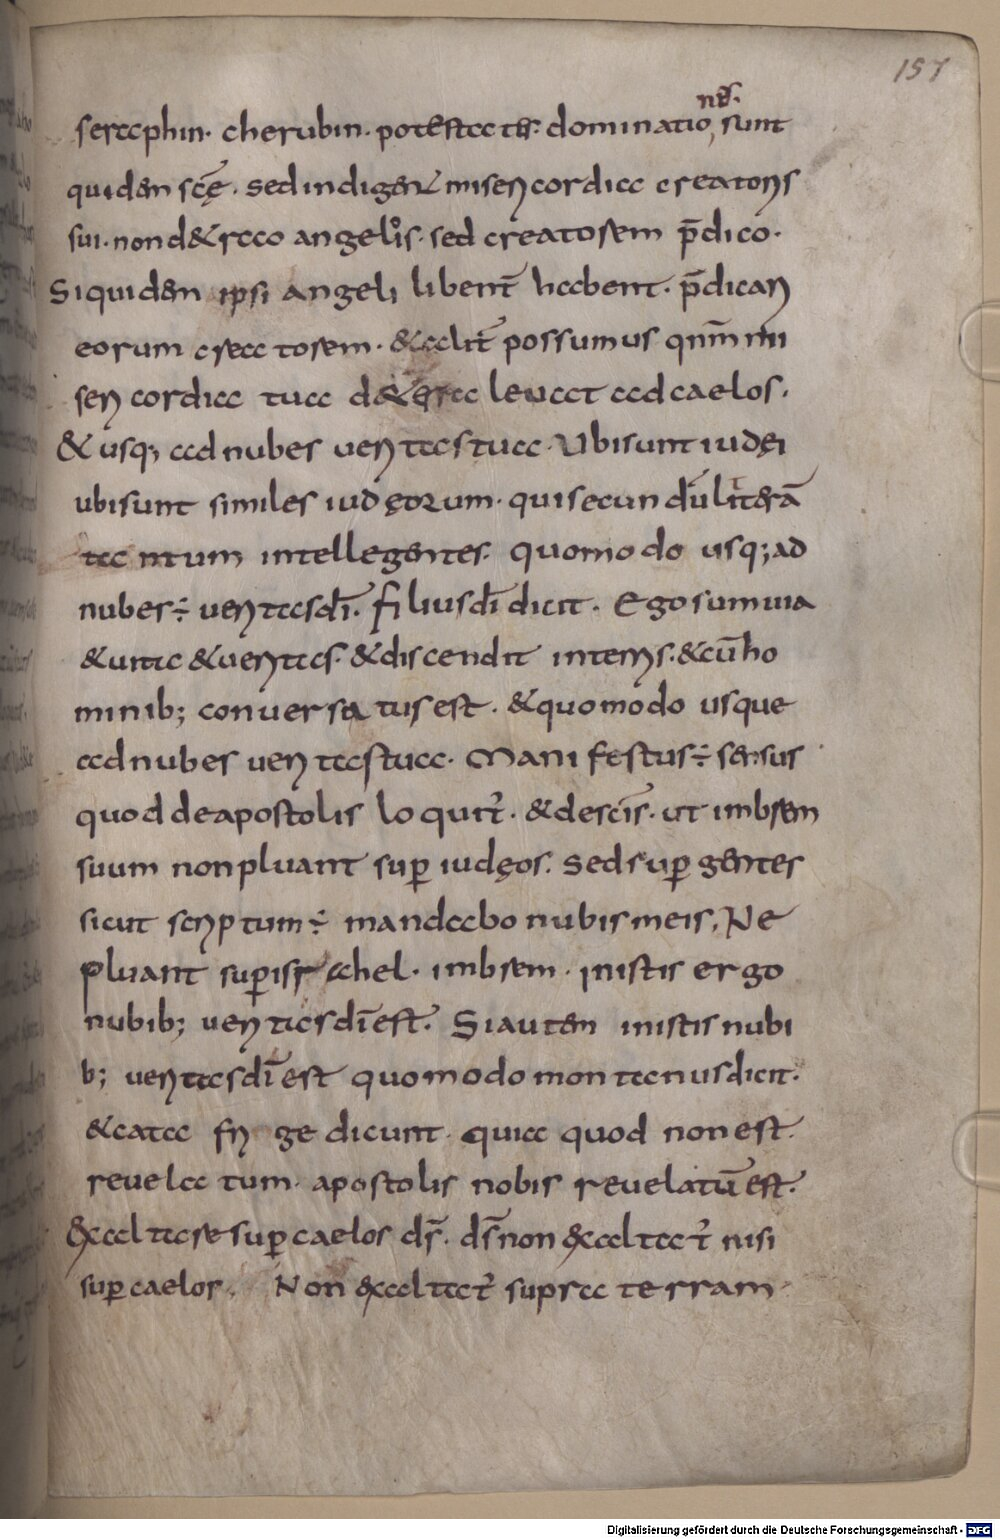 157
seraphin· cherubin· potestates· dominationes· sunt
quidem scę̄· sed indigent misericordia creatoris
sui· non detraco angelis· sed creatorem p̄dico·
Siquidem ipsi angeli libent̄ habent· p̄dicari
eorum creatorem· &alit̄ possumus qnm̄ mi
sericordia tua d& leuat ad caelos·
& usq; ad nubes ueritas tua· Ubi sunt iudęi
ubi sunt similes iudęorum· qui secundū litterā
tantum intellegentes· quomodo usq; ad
nubes ÷ ueritas dī· filius dī dicit· Ego sum uia
& uita & ueritas· & discendit in terris· & cū ho
minib; conuersatus est· & quomodo usque
ad nubes ueritas tua· Manifestus ÷ sensus
quod de apostolis loquit̄· & de scīs· ut imbrem
suum non pluant sup iudęos· sed sup gentes
sicut scriptum ÷ mandabo nubis meis, Ne
pluant sup israhel· imbrem· in istis ergo
nubib; ueritas dī est· Si autem in istis nubi
b; ueritas dī est quomodo montanus dicit·
& cata frige dicunt· quia quod non est
reuelatum· apostolis nobis reuelatū est·
Exaltare sup caelos ds̄· ds̄ non exaltat̄ nisi
sup caelos· Non exaltat̄ supra terram·
Digitalisierung gefördert durch die Deutsche Forschungsgemeinschaft - DFG